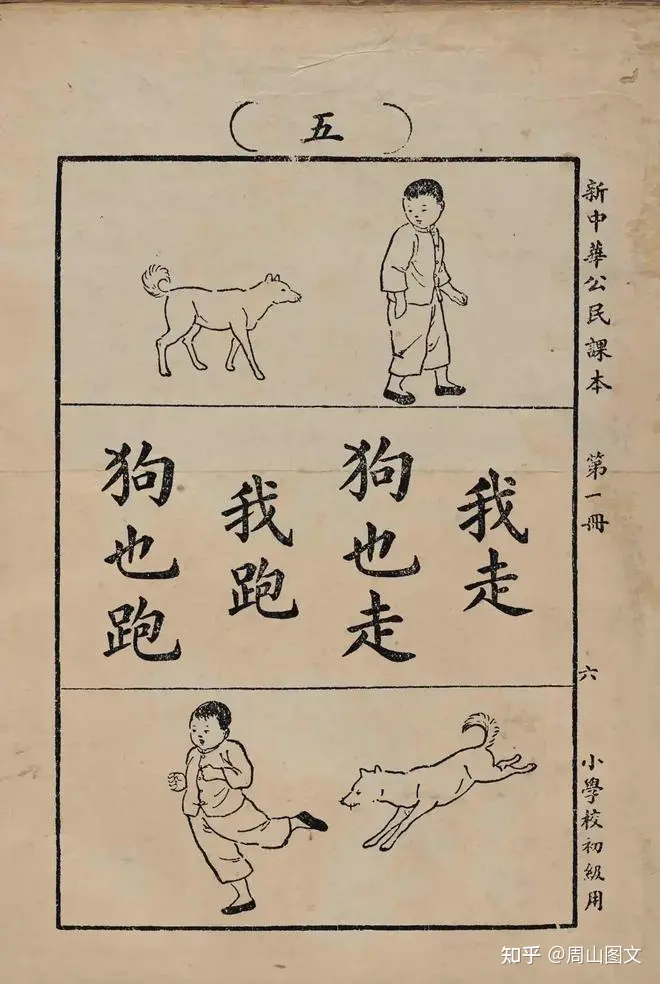 五
我走
狗也走
我跑
狗也跑
新中華公民課本
第一冊
六
小學校初級用
知乎 @周山图文